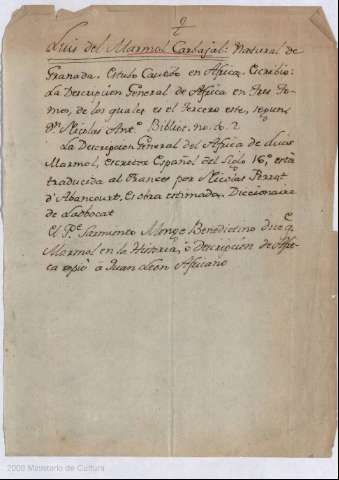 Luis del Marmol Carbajal: Natural de
Granada. Estubo Cautibo en Africa. Escribio:
La Descripcion General de Africa en tres to-
mos, de los quales es el tercero este, segun
Dn. Nicolas Ant.º Bibliot. no. t. 2
La Descripcion General del Africa de Luis
Marmol, escritor Español del Siglo 16, està
traducida al Frances por Nicolas Perrot
d'Abancourt. Es obra estimada. Diccionaire
de Ladbocat
El P.e Sarmiento Monge Benedictino dice q.
Marmol en la Historia, ò Descripcion de Afri-
ca copiò à Juan Leon Africano
2009 Ministerio de Cultura